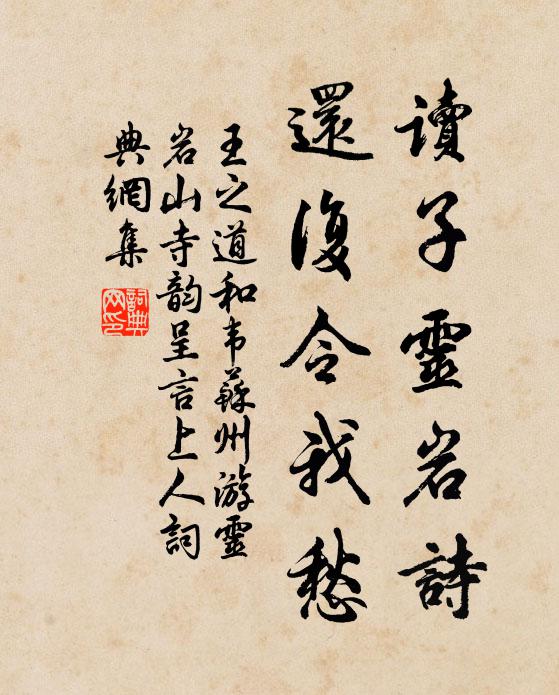 讀子靈岩詩
還復令我愁
王之道和韦蘇州游靈
岩山寺韵呈言上人詞
典網集
詞典网印